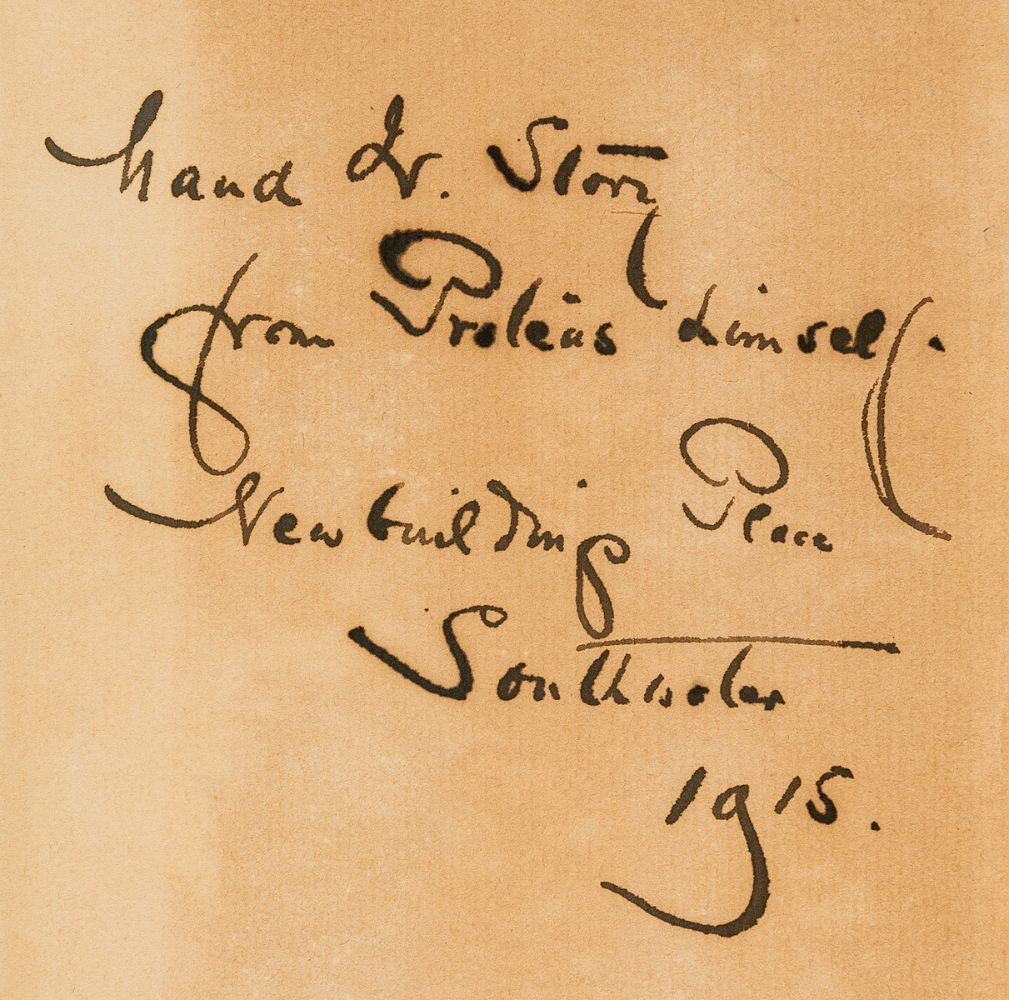 Maud W. Story
from Proteus himself.
Newbuildings Place
Southwater
1915.